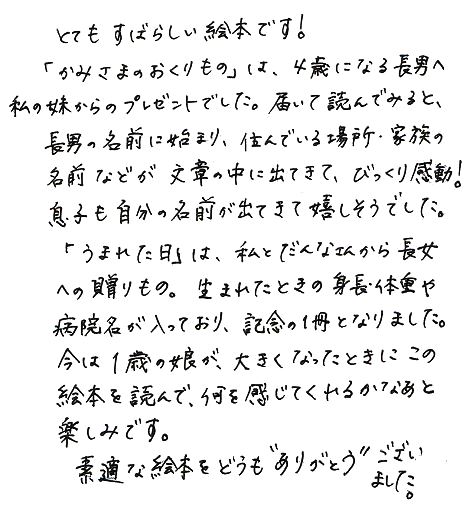 とてもすばらしい絵本です!
「かみさまのおくりもの」は、4歳になる長男へ
私の妹からのプレゼントでした。届いて読んでみると、
長男の名前に始まり、住んでいる場所・家族の
名前などが文章の中に出てきて、びっくり感動!
息子も自分の名前が出てきて嬉しそうでした。
「うまれた日」は、私とだんなさんから長女
への贈りもの。生まれたときの身長・体重や
病院名が入っており、記念の1冊となりました。
今は1歳の娘が、大きくなったときにこの
絵本を読んで、何を感じてくれるかなあと
楽しみです。
素適な絵本をどうも"ありがとう"ござい
ました。